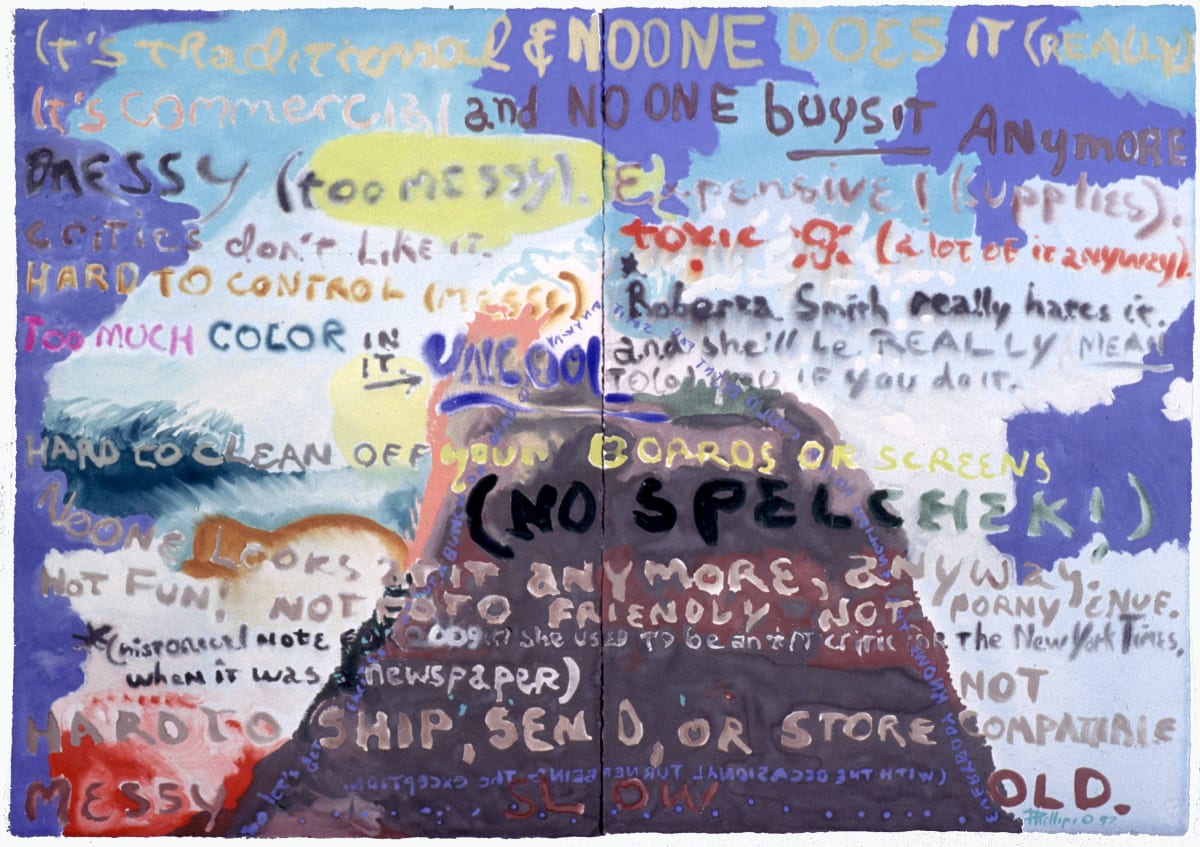 It's traditional & NOONE DOES IT (REALLY)
It's commercial and NO ONE buys it Anymore
MESSY (too MESSY). Expensive! (supplies).
critics don't like it. toxic (a lot of it anyway).
HARD TO CONTROL (messy) * Roberta Smith really hates it.
Too MUCH COLOR IN IT. UNCOOL and she'll be REALLY MEAN
TO YOU IF you do it.
HARD to CLEAN OFF your BOARDS OR SCREENS
(NO SPELCHEK!)
NOONE LOOKS at IT ANYMORE, anyway.
NOT FUN! NOT FOTO FRIENDLY NOT PORNY ENUF.
*(historical NOTE FOR 2009: she used to be an art critic for the New York Times,
when it was a newspaper) NOT
HARD TO SHIP, SEND, OR STORE COMPATIBLE
(WITH THE OCCASIONAL TURNER BEING THE EXCEPTION
MESSY SLOW OLD.
Phillips © 97